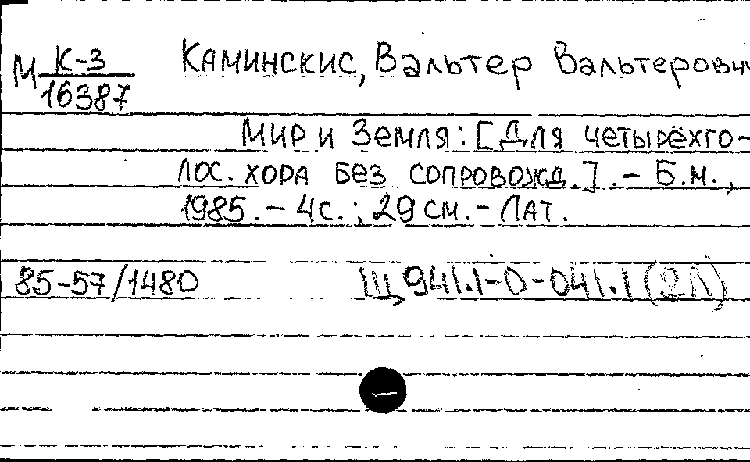 М К-3 Каминскис, Вальтер Вальтерови
16387
Мир и Земля: [Для четырёхго-
лос. хора без сопровожд.]. - Б.м.,
1985. - 4с.; 29см. - Лат.
85-57/1480 Щ941.1-0-041.1(2Л)